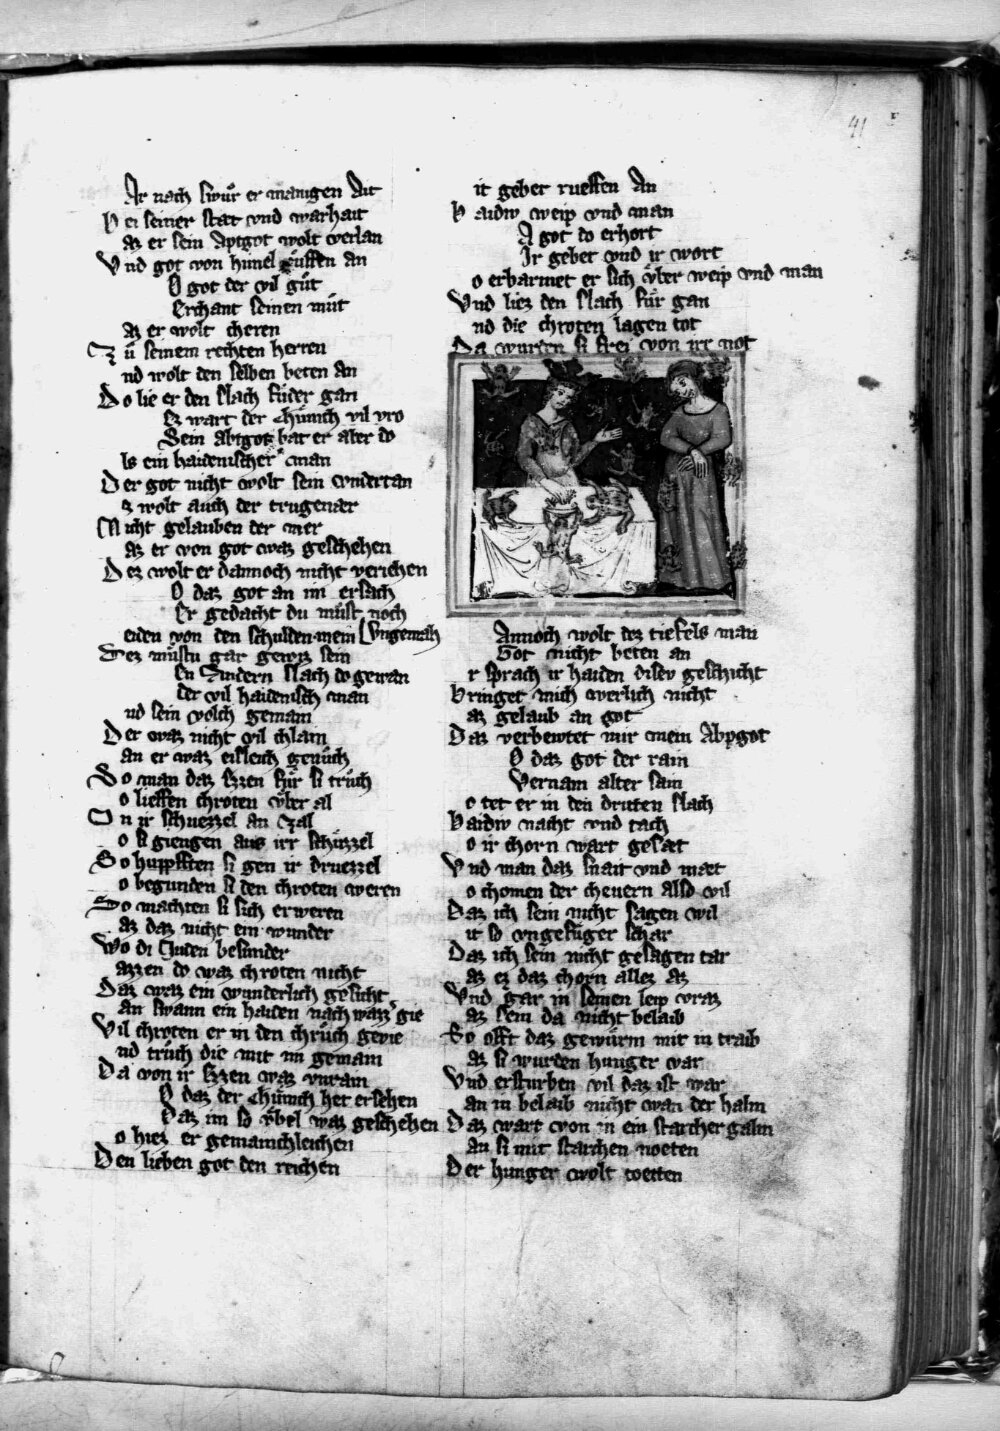 41
Ar nach swůr er manigen Ait
Bei seiner stat vnd warhait
az er sein Aptgot wolt verlan
Vnd got von himel růffen an
O got der vil gůt
Erchant seinen můt
az er wolt cheren
Zů seinem rechten herren
nd wolt den selben beten an
Do lie er den slach fůder gan
Ez wart der Chůnich vil vro
Sein abtgot bat er aber do
ls ein haidenischer man
Der got nicht wolt sein vndertan
z wolt auch der trugener
Nicht gelauben der mer
az er von got waz geschehen
Dez wolt er dannoch nicht veriehen
O daz got an im ersach
Er gedacht du můst noch
eiden von den schulden mein Vngemach
Dez můstu gar gewiz sein
En Andern slach do gewan
der vil haidenisch man
nd sein volch gemain
Der waz nicht vil chlain
an er waz eisleich genůch
Do man daz Ezzen fůr si trůch
o lieffen chroten vber al
In ir schuezzel an Zal
o si giengen aus irr schůzzel
So huppften si gen ir druezzel
o begunden si den chroten weren
So machten si sich erweren
az daz nicht ein wunder
Wo di Juden besunder
azzen do waz chroten nicht
Daz waz ein wunderlich gesicht
an swann ein haiden nach wazz gie
Vil chroten er in den chrůch gevie
nd trůch die mit im gemain
Da von ir Ezzen waz vnrain
O daz der Chůnich het ersehen
Daz im so vbel waz geschehen
o hiez er gemainchleichen
Den lieben got den reichen
it gebet rueffen An
Baidiv weip vnd man
A got do erhort
Ir gebet vnd ir wort
o erbarmet er sich vber weip vnd man
Vnd liez den slach fůr gan
nd die chroten lagen tot
Da wurden si frei von irr not
Annoch wolt dez tiefels man
Got nicht beten an
r sprach ir haiden disev geschicht
Bringet mich werlich nicht
az gelaub an got
Daz verbewtet mir mein Abpgot
O daz got der rain
Vernam alter sain
o tet er in den dritten slach
Baidiv nacht vnd tach
o ir chorn wart gesæt
Vnd man daz snait vnd mæt
o chomen der cheuern also vil
Daz ich sein nicht sagen wil
it so vngefůger schar
Daz ich sein nicht gesagen tar
az ez daz chorn allez az
Vnd gar in seinen leip vraz
az sein da nicht belaib
So offt daz gewůrm mit in traib
az si wurden hunger var
Vnd ersturben vil daz ist war
an in belaib nicht wan der halm
Daz wart von in ein starcher galm
an si mit starchen noeten
Der hunger wolt toetten